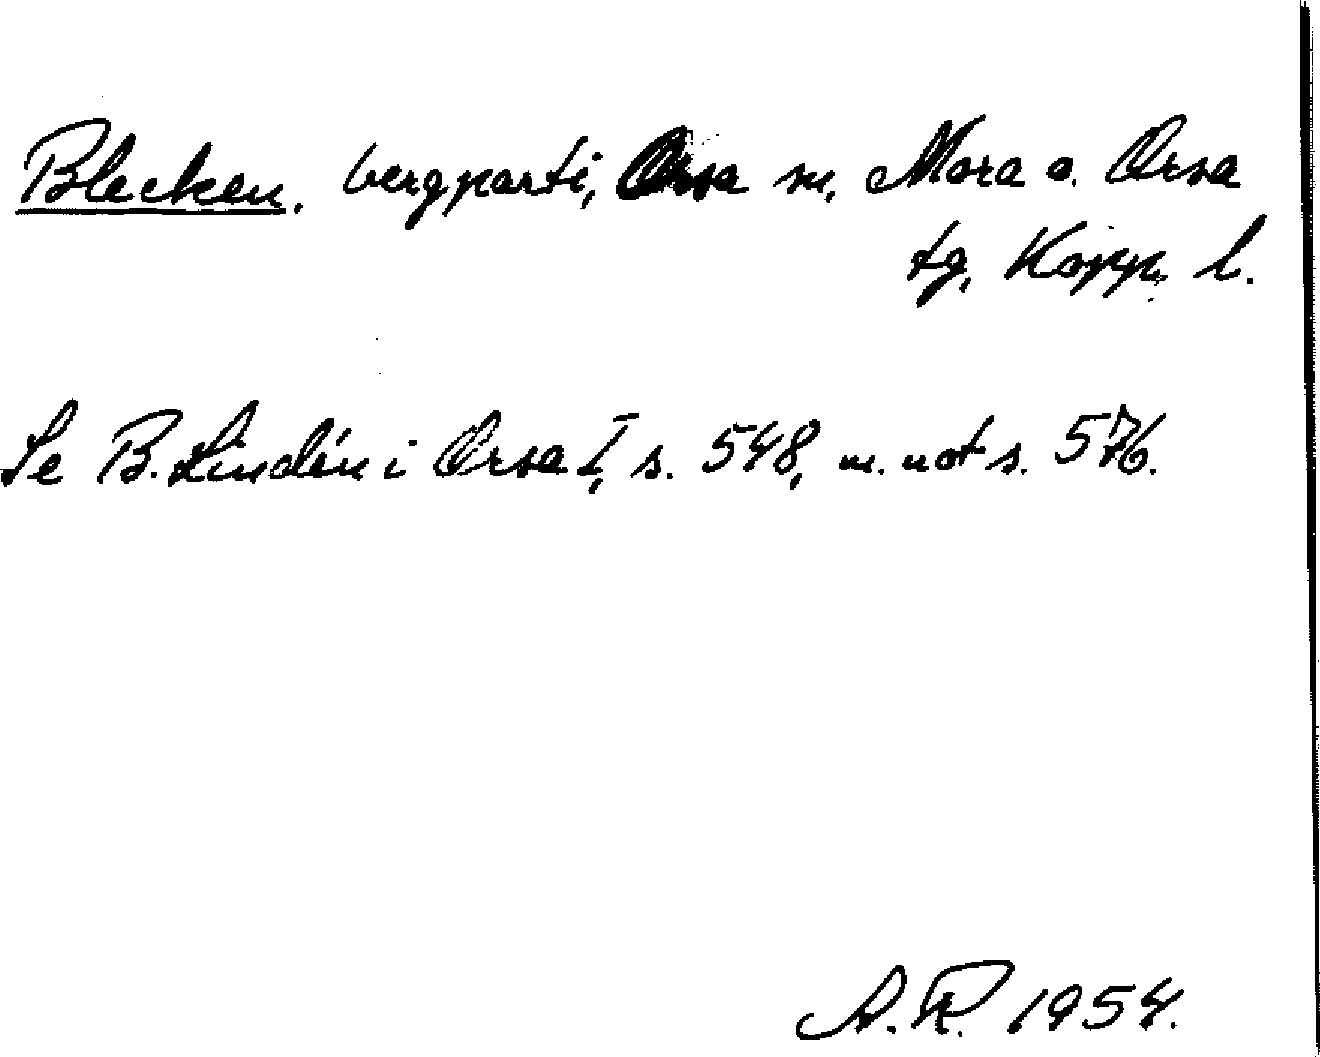 Blecken. bergparti, Orsa sn, Mora o. Orsa
tg, Kopp. l.
Se B. Lindén i Orsa I, s. 548, m. not s. 576.
A.R. 1954.